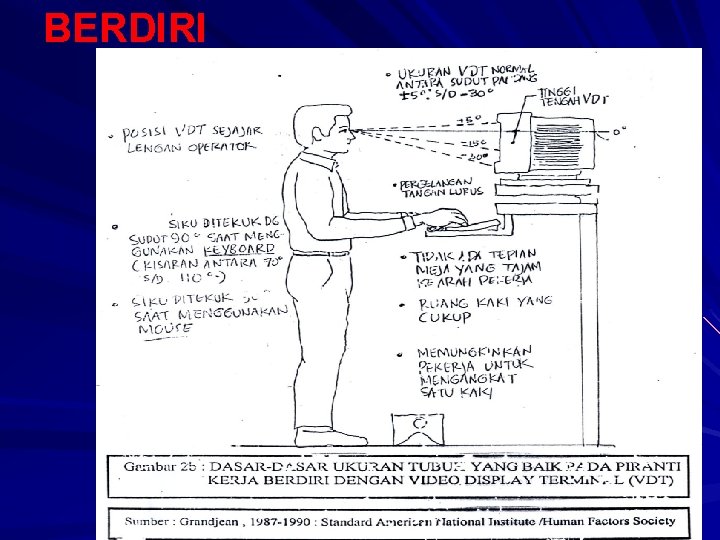 BERDIRI
• UKURAN VDT NORMAL
ANTARA SUDUT PANDANG
±5° S/D -30°
TINGGI
TENGAH VDT
±5°
0°
-15°
• POSISI VDT SEJAJAR
LENGAN OPERATOR
• PERGELANGAN
TANGAN LURUS
• SIKU DITEKUK DG
SUDUT 90° SAAT MENG-
GUNAKAN KEYBOARD
(KISARAN ANTARA 70°
S/D 110°)
• TIDAK ADA TEPIAN
MEJA YANG TAJAM
KE ARAH PEKERJA
• SIKU DITEKUK
SAAT MENGGUNAKAN
MOUSE
• RUANG KAKI YANG
CUKUP
• MEMUNGKINKAN
PEKERJA UNTUK
MENGANGKAT
SATU KAKI
Gambar 2b : DASAR-DASAR UKURAN TUBUH YANG BAIK PADA PIRANTI
KERJA BERDIRI DENGAN VIDEO DISPLAY TERMINAL (VDT)
Sumber : Grandjean , 1987-1990 : Standard American National Institute /Human Factors Society